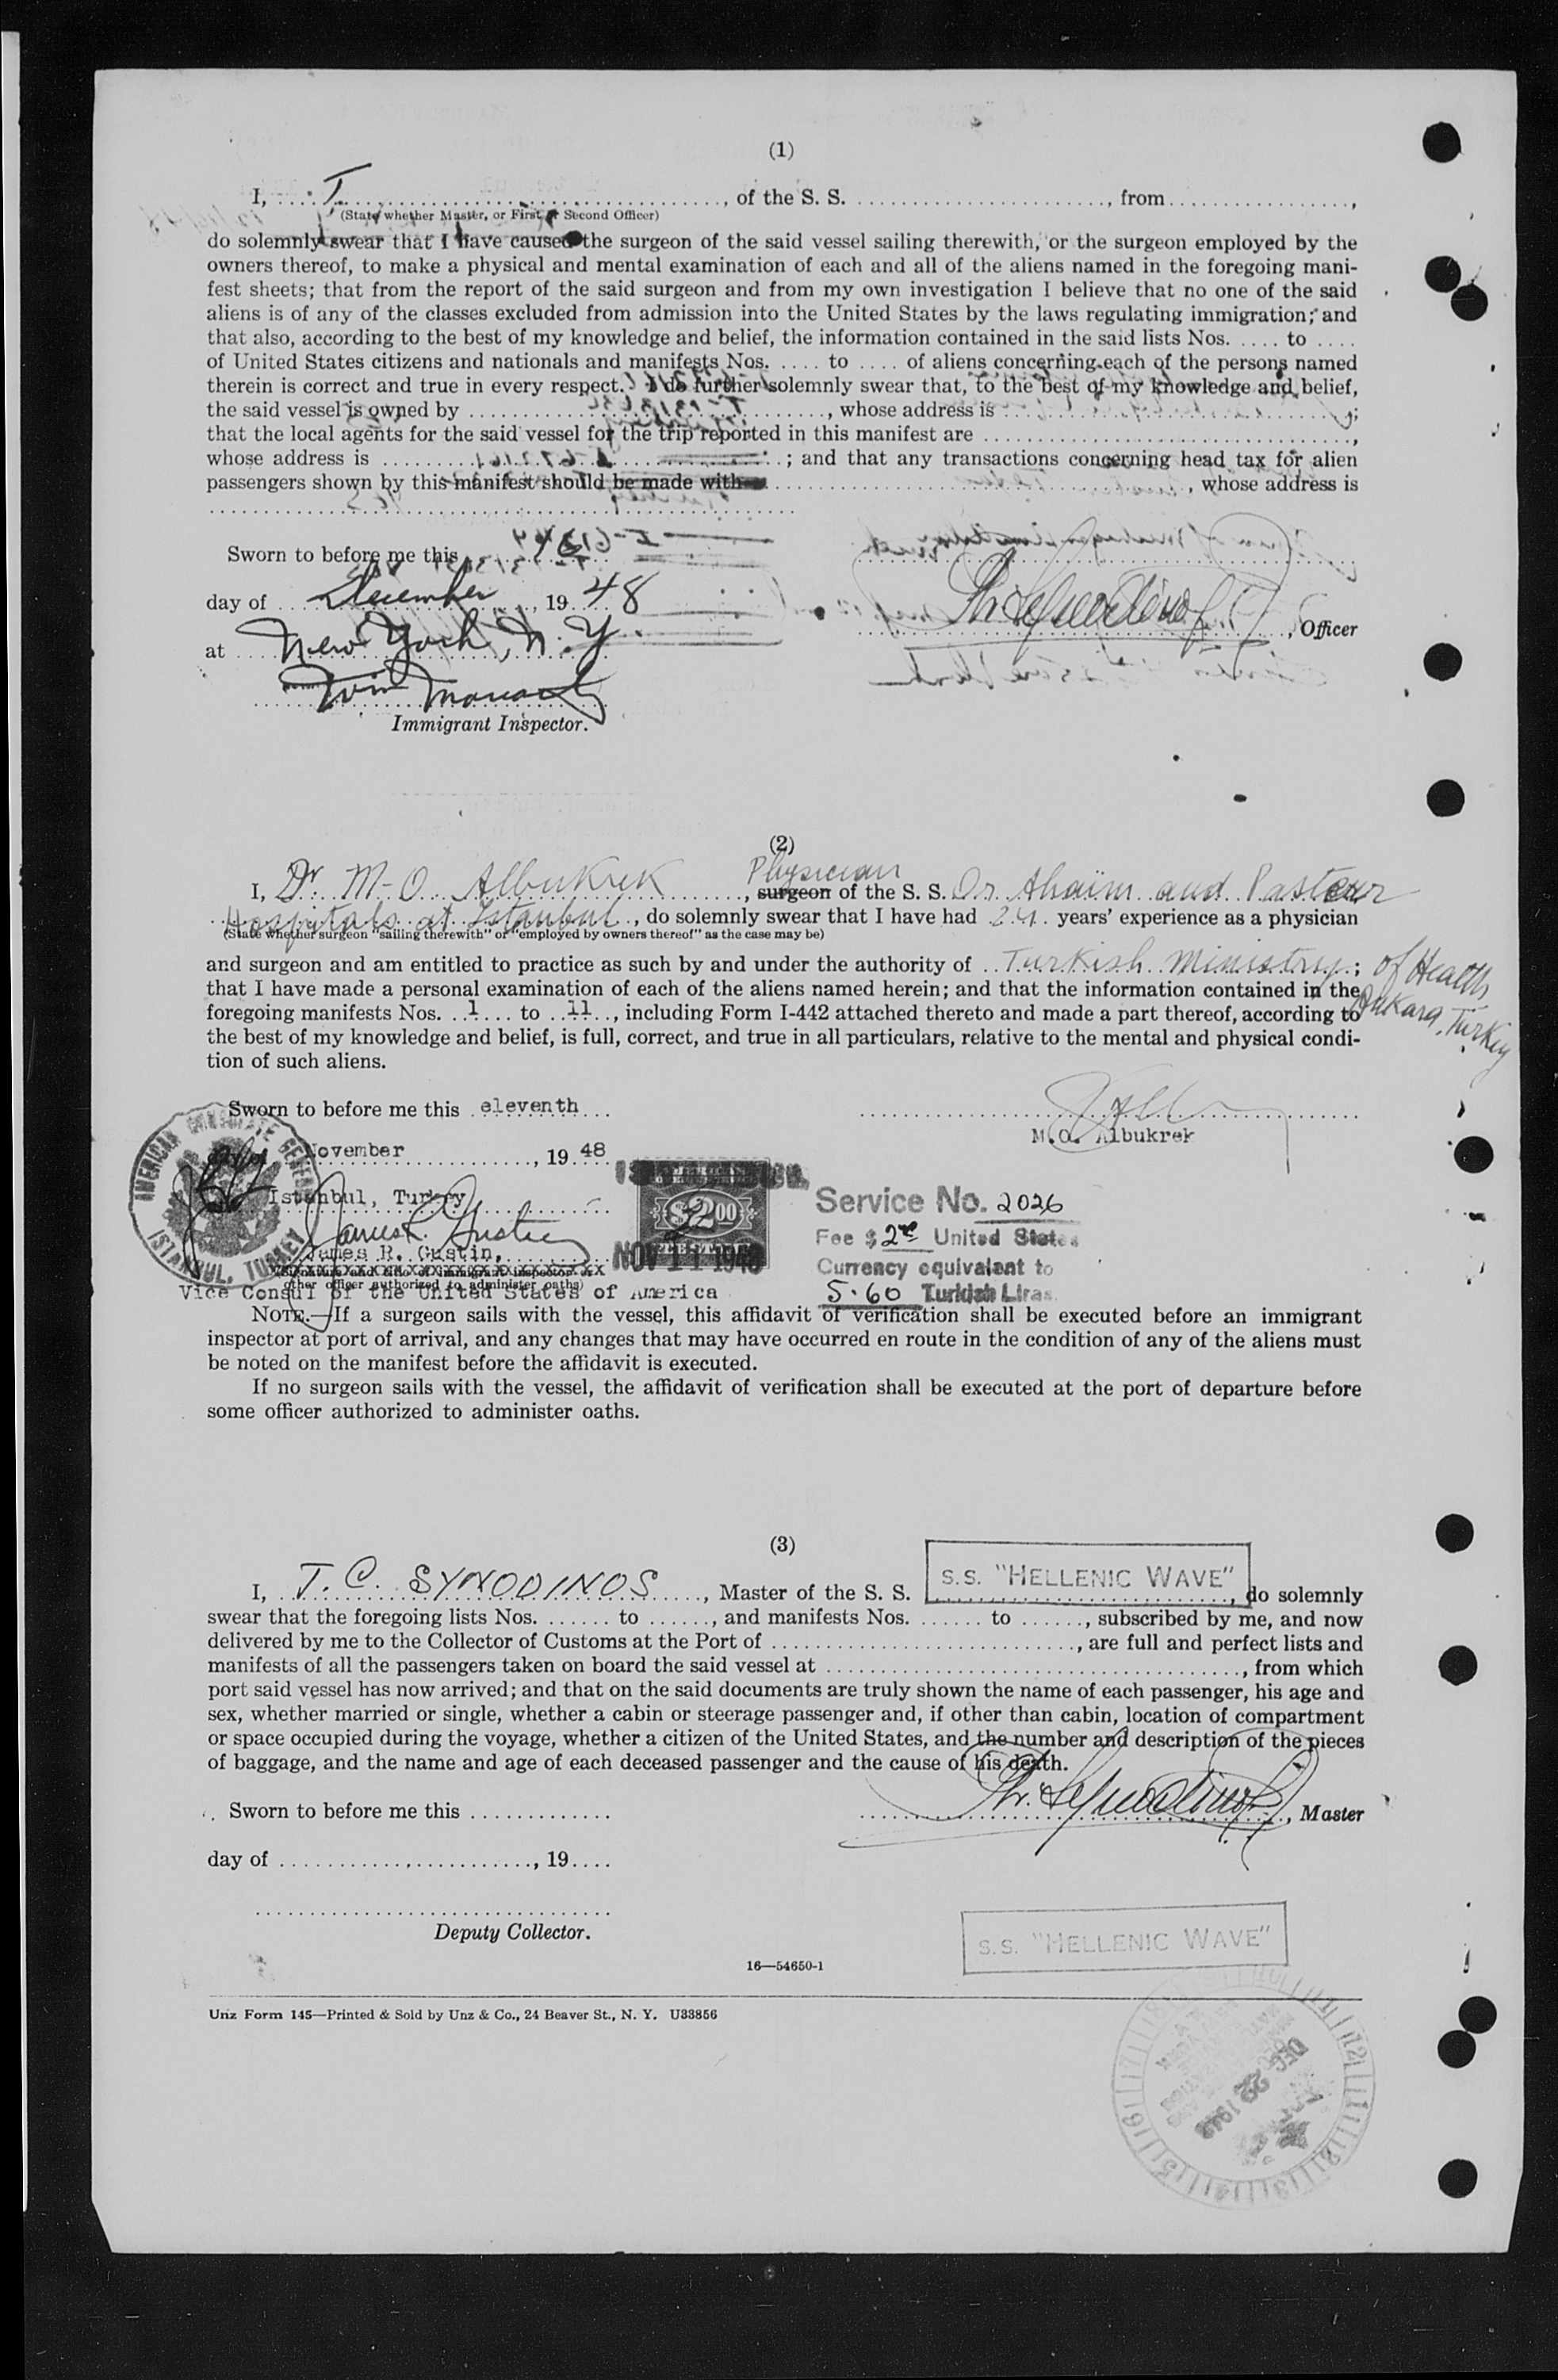 (1)
I, T , of the S. S. , from ,
(State whether Master, or First or Second Officer)
do solemnly swear that I have caused the surgeon of the said vessel sailing therewith, or the surgeon employed by the
owners thereof, to make a physical and mental examination of each and all of the aliens named in the foregoing mani-
fest sheets; that from the report of the said surgeon and from my own investigation I believe that no one of the said
aliens is of any of the classes excluded from admission into the United States by the laws regulating immigration; and
that also, according to the best of my knowledge and belief, the information contained in the said lists Nos. .... to ....
of United States citizens and nationals and manifests Nos. .... to .... of aliens concerning each of the persons named
therein is correct and true in every respect. I do further solemnly swear that, to the best of my knowledge and belief,
the said vessel is owned by , whose address is ;
that the local agents for the said vessel for the trip reported in this manifest are ,
whose address is ; and that any transactions concerning head tax for alien
passengers shown by this manifest should be made with , whose address is
Sworn to before me this
day of December , 19 48
, Officer
at New York, N.Y.
Immigrant Inspector.
(2)
Physician
I, Dr. M-O. Albukrek , surgeon of the S. S. Or. Ahaim and Pasteur
Hospitals at Istanbul , do solemnly swear that I have had 24 years' experience as a physician
(State whether surgeon "sailing therewith" or "employed by owners thereof" as the case may be)
and surgeon and am entitled to practice as such by and under the authority of Turkish Ministry ; of Health
that I have made a personal examination of each of the aliens named herein; and that the information contained in the Ankara, Turkey
foregoing manifests Nos. 1 to 11 , including Form I-442 attached thereto and made a part thereof, according to
the best of my knowledge and belief, is full, correct, and true in all particulars, relative to the mental and physical condi-
tion of such aliens.
Sworn to before me this eleventh
M.O. Albukrek
November , 19 48
AMERICAN CONSULATE GENERAL
ISTANBUL, TURKEY
Istanbul, Turkey
$2.00
NOV 11 1948
Service No. 2026
Fee $ 2.00 United States
Currency equivalent to
5.60 Turkish Liras.
James R. Gustin
James R. Gustin,
(Signature and title of immigrant inspector or
other officer authorized to administer oaths)
Vice Consul of the United States of America
NOTE.—If a surgeon sails with the vessel, this affidavit of verification shall be executed before an immigrant
inspector at port of arrival, and any changes that may have occurred en route in the condition of any of the aliens must
be noted on the manifest before the affidavit is executed.
If no surgeon sails with the vessel, the affidavit of verification shall be executed at the port of departure before
some officer authorized to administer oaths.
(3)
I, T. C. SYNODINOS , Master of the S. S. S.S. "HELLENIC WAVE" , do solemnly
swear that the foregoing lists Nos. ....... to ......, and manifests Nos. ....... to ......, subscribed by me, and now
delivered by me to the Collector of Customs at the Port of , are full and perfect lists and
manifests of all the passengers taken on board the said vessel at , from which
port said vessel has now arrived; and that on the said documents are truly shown the name of each passenger, his age and
sex, whether married or single, whether a cabin or steerage passenger and, if other than cabin, location of compartment
or space occupied during the voyage, whether a citizen of the United States, and the number and description of the pieces
of baggage, and the name and age of each deceased passenger and the cause of his death.
Sworn to before me this
, Master
day of , 19....
Deputy Collector.
S.S. "HELLENIC WAVE"
16—54650-1
Unz Form 145—Printed & Sold by Unz & Co., 24 Beaver St., N. Y. U33856
DEC 22 1948